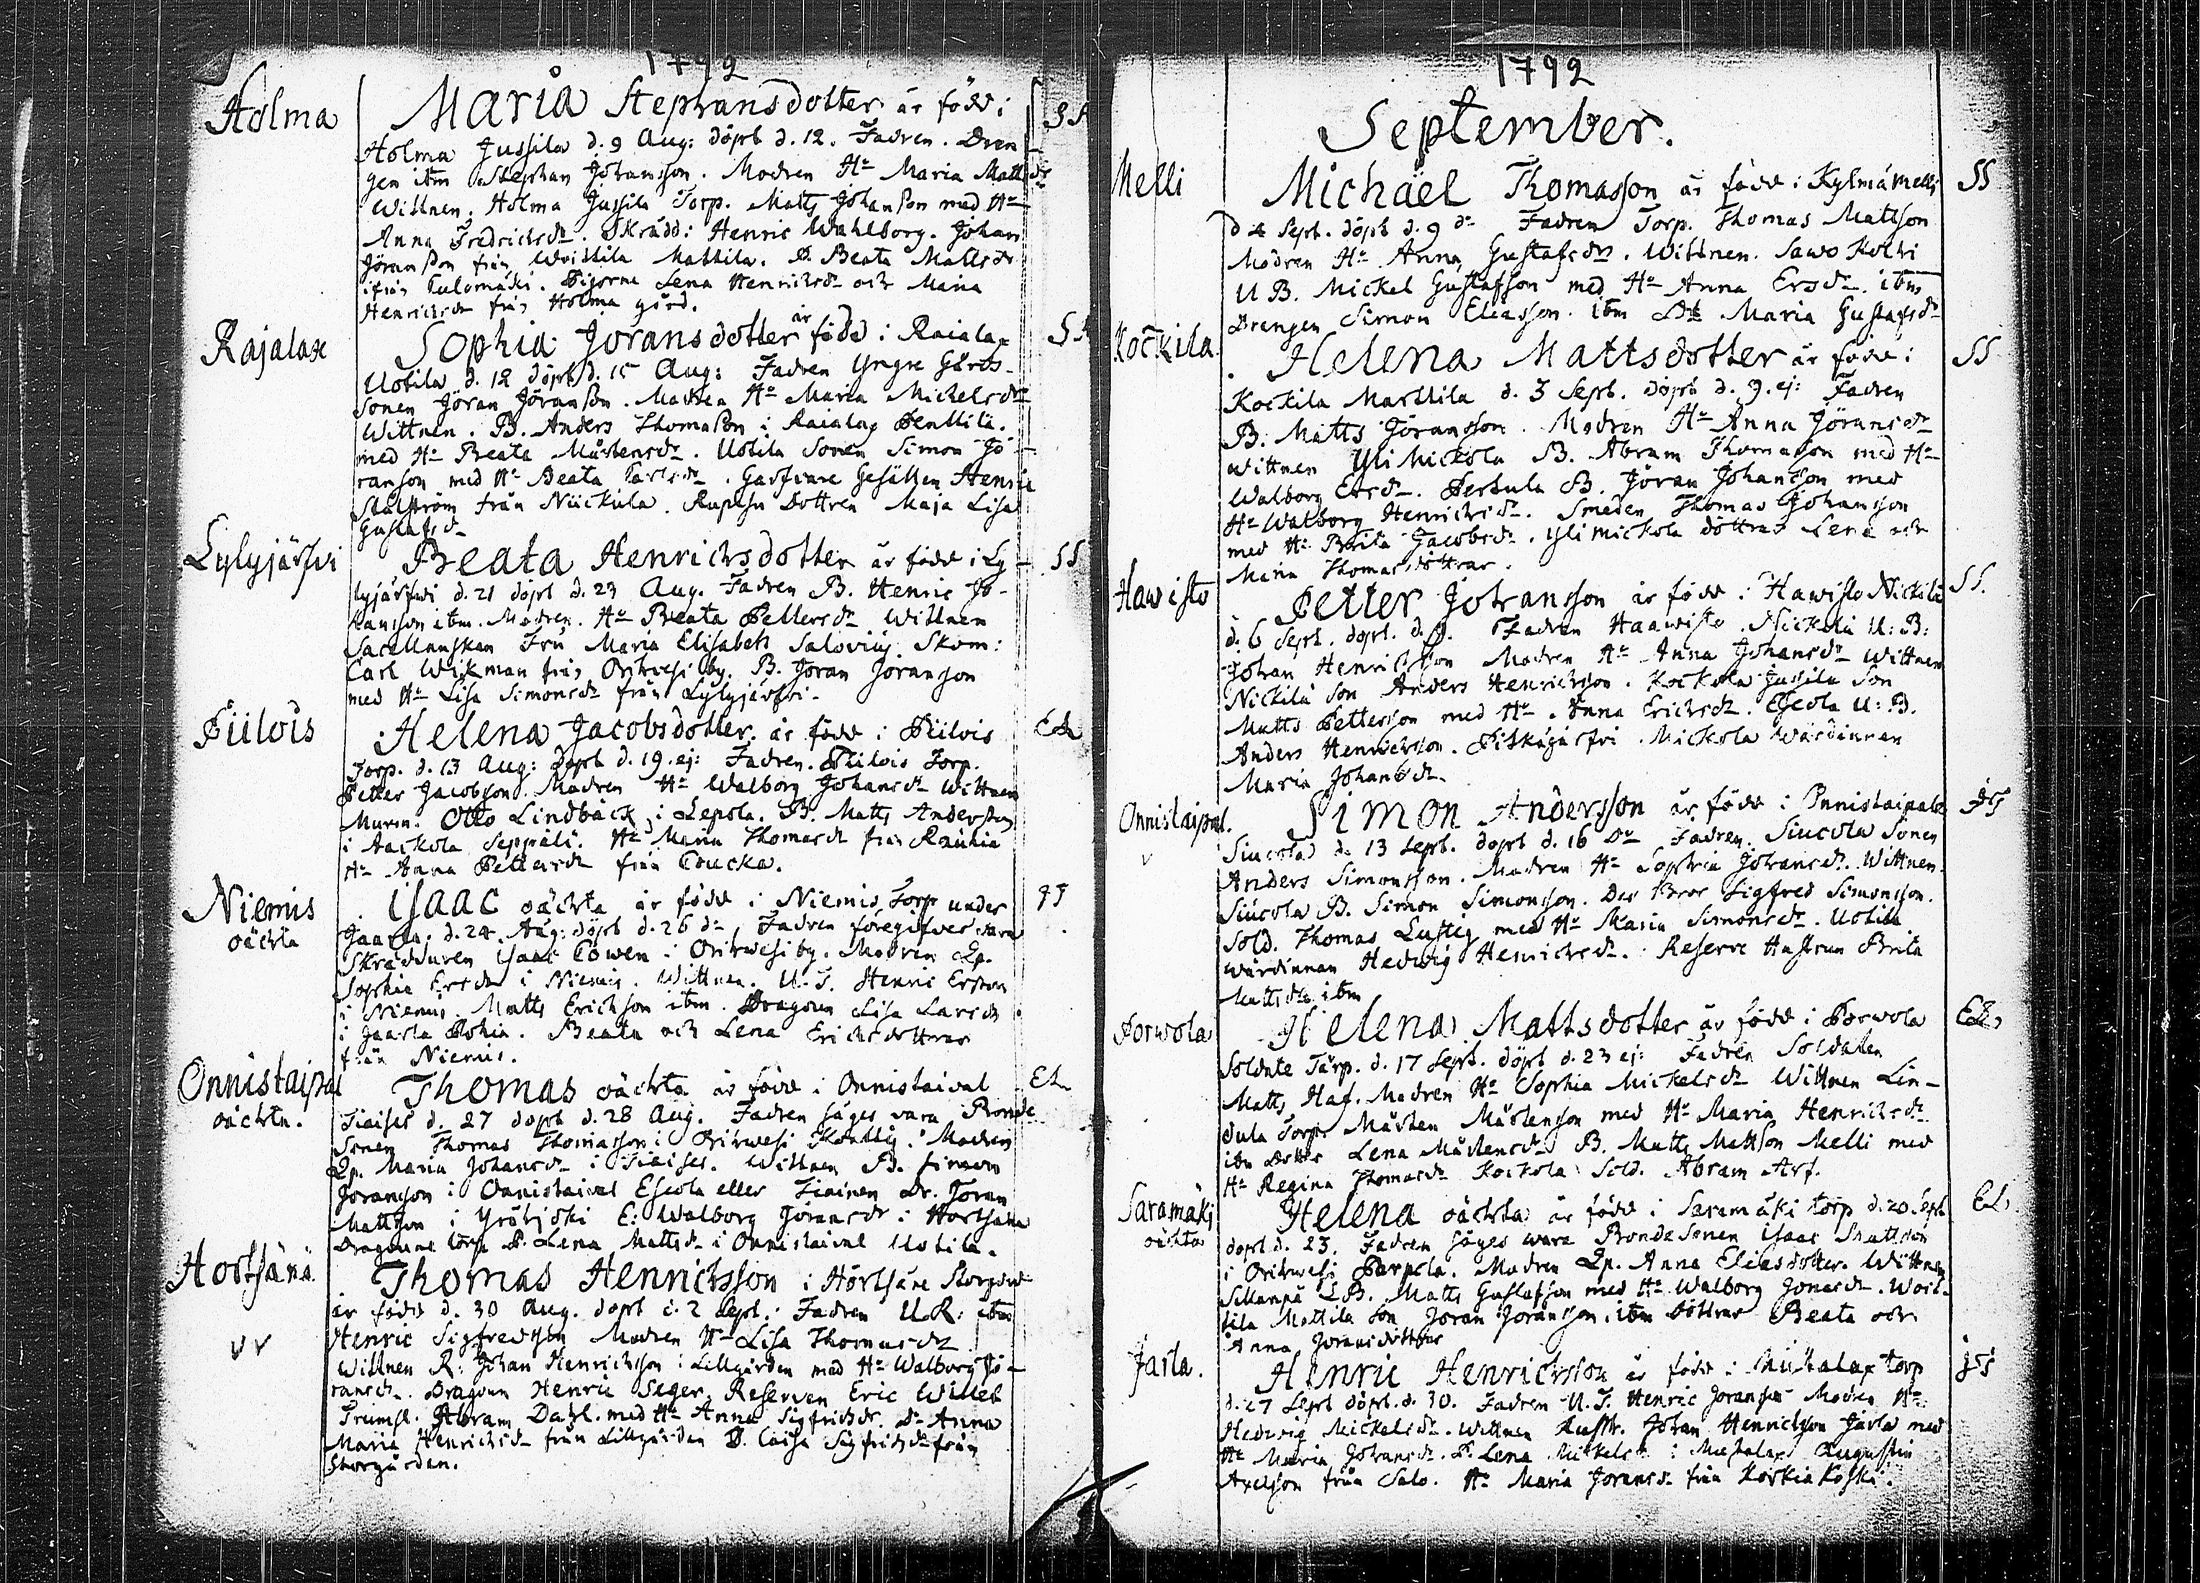 1792
Holma Maria Stephansdotter är född i
Holma Jussila d. 9 Aug: döpt d. 12. Fadren. Dren-
gen ibm Stephan Johansson. Modren Hu Maria Mattsdr
Wittnen. Holma Jussila Torp. Matts Johansson med Hu
Anna Fredrichsdr. Skrädd: Henric Wahlborg. Johan
Jöransson från Woitila Mattila. P. Beata Mattsdr
ifrån Palomäki. Pigorna Lena Henrichsdr och Maria
Henrichsdr från Holma gård.
Rajalax Sophia Joransdotter är född i Raialax
Uotila d. 12 döpt d. 15 Aug: Fadren Yngre Gårds-
sonen Jöran Jöransson. Modren Hu Maria Michelsdr
Wittnen. B. Anders Thomasson i Raialax Penttilä.
med Hu Beata Mårtensdr. Uotila Sonen Simon Jö-
ranson med Hu Beata Carlsdr. Garfvare Gesällen Henric
Stålström från Niickula. Dottren Maja Lisa
Gustafsdr
Lylyjärfvi Beata Henrichsdotter är född i Ly- SS
lyjärfwi d. 21 döpt d. 23 Aug. Fadren B. Henric Jo-
hansson ibm. Modren. Hu Beata Pettersdr Wittnen
Sacellanskan Fru Maria Elisabeth Salovius. Skom:
Carl Wikman från Orihvesi by. B. Jöran Joranson
med Hu Lisa Simonsdr från Lylyjärfvi.
Piilois Helena Jacobsdotter är född i Piilois
Torp. d. 13 Aug: döpt d. 19. ej: Fadren. Piilois Torp.
Petter Jacobson. Modren Hu Walborg Johansdr Wittnen
Murm. Otto Lindbäck i Lepola. B. Matts Andersson
i Aackola Seppälä. Hu Maria Thomasdr från Rauhia
Hu Anna Pettersdr från Coucka.
Niemis Isaac oächta är född i Niemis Torp under
oächta Jaarla. d. 24. Aug: döpt d. 26 dn Fadren föregifves vara
Skräddaren Isaac Cowen i Orihwesi by. Modren Qp.
Sophia Ersdr i Niemis. Wittnen. U. T. Henric Ersson
i Niemis. Matts Erichson ibm. Dragoun Lisa Larsdr
i Jaarla Beata och Lena Erichsdottrar
från Niemis.
Onnistaipal Thomas oächta är född i Onnistaival
oächta. Tiaises d. 27 döpt d. 28 Aug. Fadren säges vara Bonde
Sonen Thomas Thomasson i Orihwesi Modren
Qp. Maria Johansdr i Tiaises. Wittnen B. Simon
Joranson i Onnistaival Escola eller Tiainen Dr. Joran
Mattson i E: Walborg Joransdr i Hortsana
Dragoune torp P. Lena Mattsdr i Onnistaival Uotila.
Hortsänä Thomas Henricksson i Hörtsäne Storgård
är född d. 30 Aug. döpt d. 2 Sept: Fadren U.R: ibm
VV Henric Sigfredsson Modren Hu Lisa Thomasdr
Wittnen R: Johan Henrichsson i Lillgården med Hu Walborg Jö-
ransdr. Dragoun Henric Seger. Reserven Eric Willet
Trumsl. Abram Dahl. med Hu Anna Sigfridsdr. Dr Anna
Maria Henrichsdr från Lillgården P. Caisa Sigfridsdr från
Storgården.
1792
September.
Melli Michaël Thomasson är född i Kylmämelli SS
d 4 Sept. döpt d. 9 dn Fadren Torp. Thomas Mattson
Modren Hu Anna Gustafsdr. Wittnen. Sawo
U B. Mickel Gustafson med Hu Anna Ersdr. ibm
Drengen Simon Eliasson. ibm Maria Gustafsdr
Kockila Helena Mattsdotter är född i SS
Kockila Marttila d. 3 Sept. döpt d. 9. ej: Fadren
B. Matts Göransson. Modren Hu Anna Göransdr
Wittnen Yli Mickola B. Abram Thomasson med Hu
Walborg Ersdr. Pertula B. Jöran Johansson med
Hu Walborg Henrichsdr. Smeden Thomas Johansson
med Hu Brita Jacobsdr. Yli Mickola döttrar Lena och
Maria Thomasdöttrar.
Hawisto Petter Johansson är född i Hawisto Nickilä SS.
d. 6 Sept. döpt. d. 9. Fadren Haawisto Nickilä U: B:
Johan Henrichsson Modren Hu Anna Johansdr Wittnen
Nickilä Son Anders Henrichsson. Kockola Jussila Son
Matts Pettersson med Hu Anna Erichsdr. Escola U: B.
Anders Henrichsson. Mickola Wärdinnan
Maria Johansdr.
Onnistaipal. Simon Andersson är född i Onnistaipale
v Siucola d. 13 Sept. döpt d. 16 Dn Fadren. Siucola Sonen
Anders Simonsson. Modren Hu Sophia Johansdr. Wittnen.
Siucola B. Simon Simonsson. Des Bror Sigfred Simonsson.
Sold. Thomas Lustig med Hu Maria Simonsdr. Uotila
Wärdinnan Hedwig Henrichsdr. Reserve Hustrun Brita
Mattsdr ibm
Porwola Helena Mattsdotter är född i Porwola
Soldate Tårp. d. 17 Sept. döpt d. 23 ej: Fadren Soldaten
Matts Haf. Modren Hu Sophia Mickelsdr Wittnen Lin-
dula Torp. Mårten Mårtenson med Hu Maria Henrichsdr
ibm Lena Mårtensdr B. Matts Mattson Melli med
Hu Regina Thomasdr Kockola Sold. Abram Arf.
Saramäki Helena oächta är född i Saramäki torp d. 20 Sept
oächta döpt d. 23. Fadren säges wara Bonde Sonen Isaac
i Orihwesi Modren Qp. Anna Eliasdotter. Wittnen
B. Matts Gustafsson med Hu Walborg Jonasdr. Woit-
tila Mattila Son Joran Joransson. ibm Döttrar Beata och
Anna Joransdöttrar
Jarla. Henric Henricsson är född i Mickalax torp
d. 27 Sept döpt. d. 30. Fadren U. T. Henric Joransson Modren Hu
Hedwig Mickelsdr. Wittnen Johan Henrichsson Jarla med
Hu Maria Johansdr. P. Lena Mickelsdr i Mickalax Augustin
Axelsson från Salo. Hu Maria Joransdr från Koskia Koski.